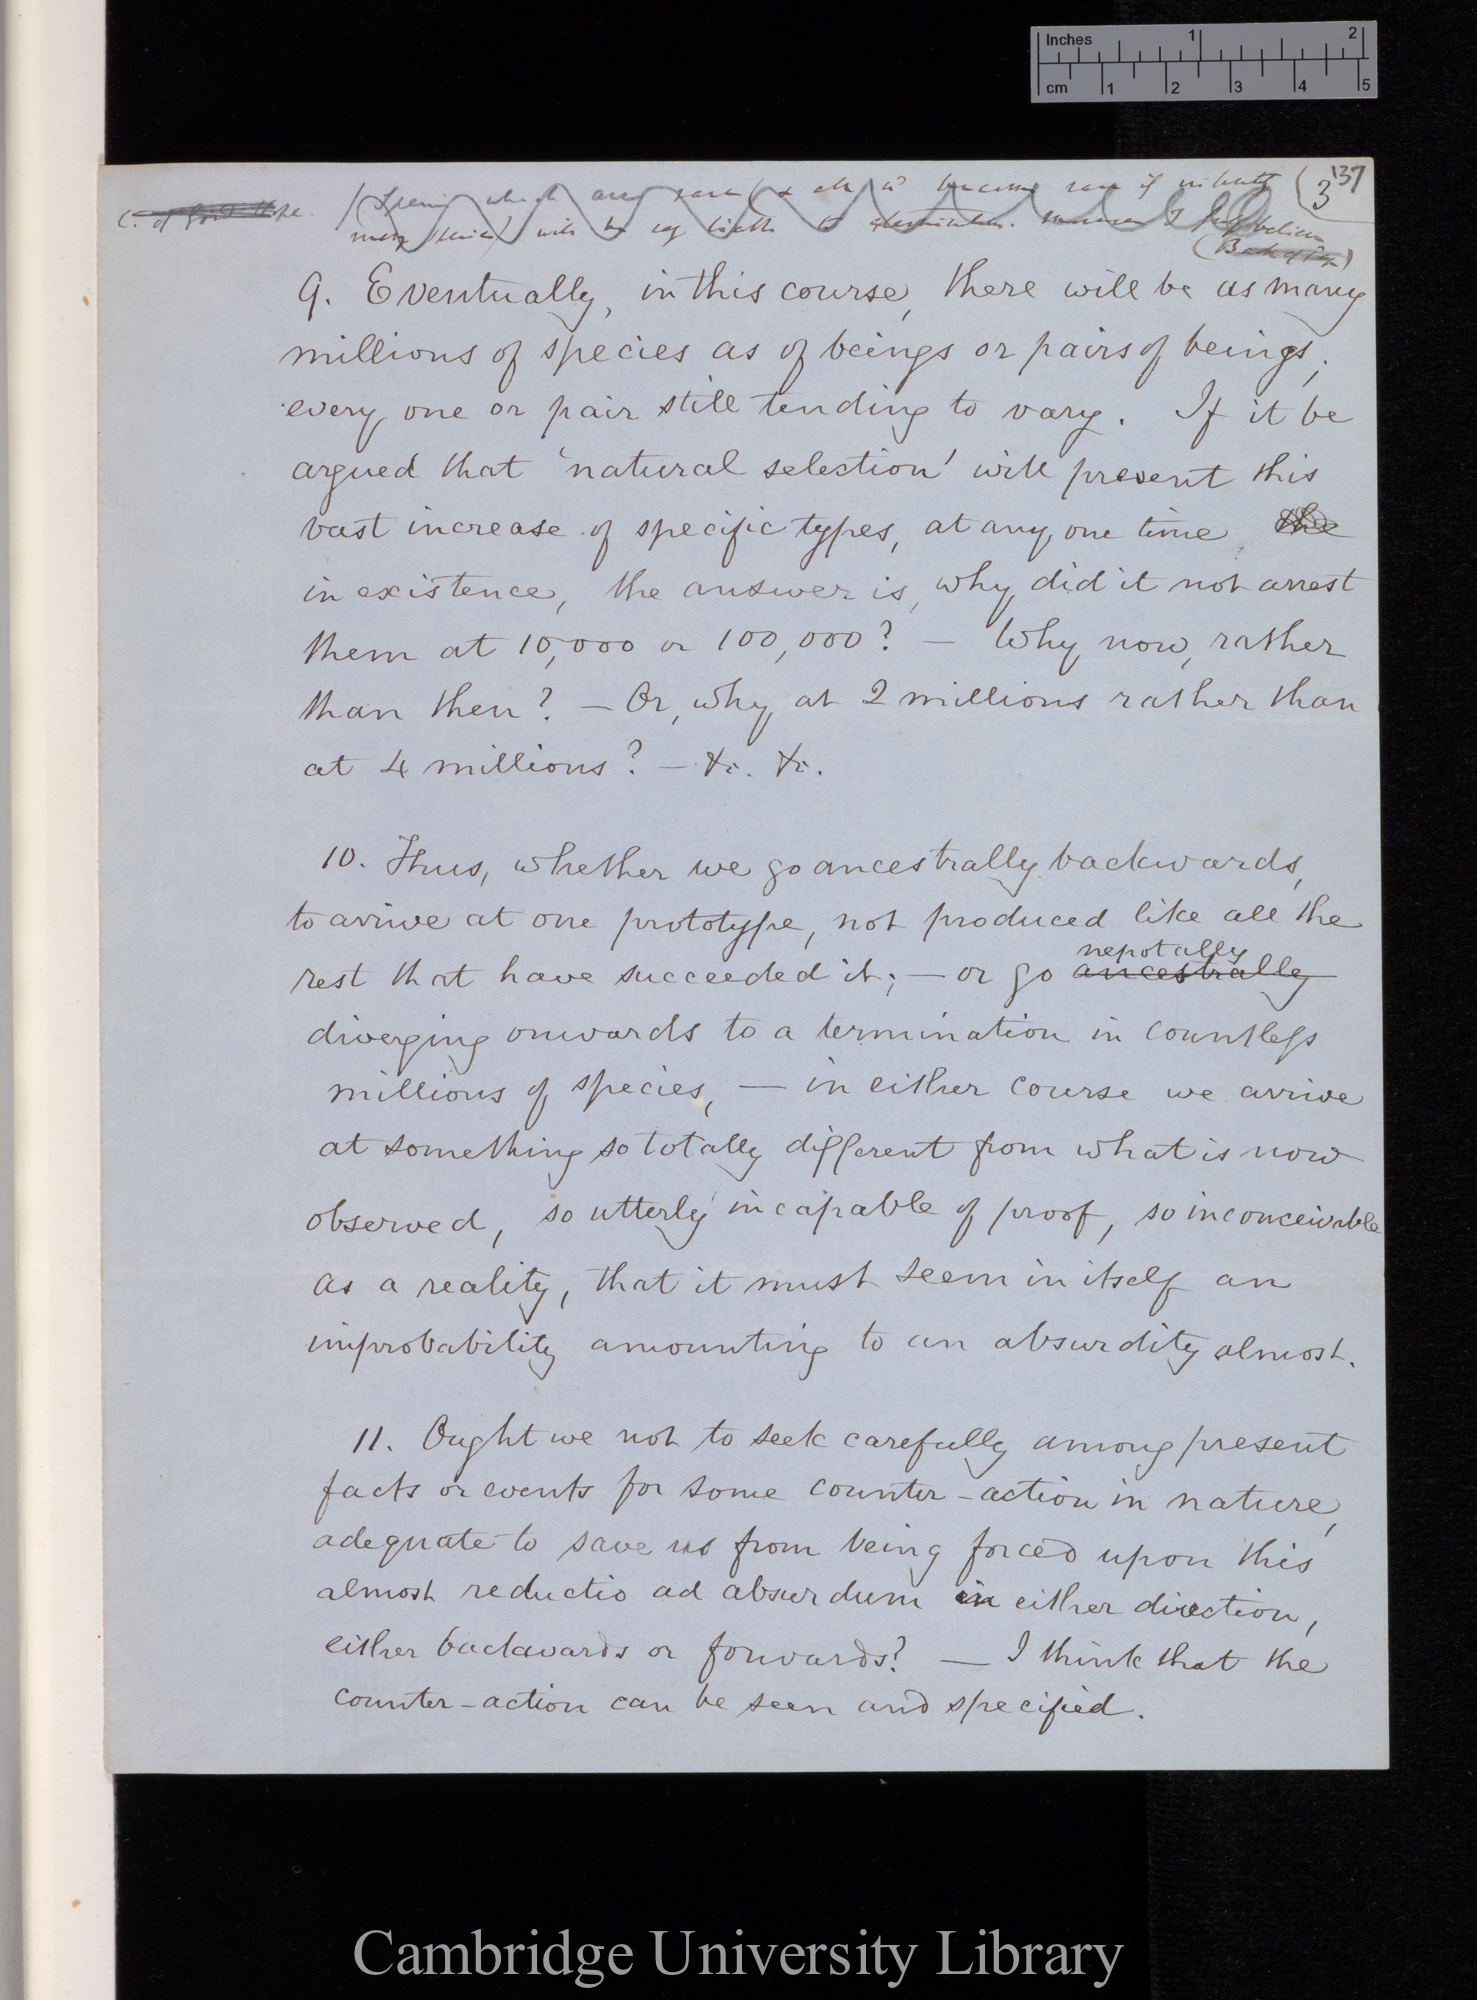 Inches 1 2
cm 1 2 3 4 5
137
3
C. of Good Hope.
(Species which are rare & as it becomes rare if
many species will be liable to extermination. I fully believe
9. Eventually, in this course, there will be as many
millions of species as of beings or pairs of beings,
every one or pair still tending to vary. If it be
argued that 'natural selection' will prevent this
vast increase of specific types, at any one time the
in existence, the answer is, why did it not arrest
them at 10,000 or 100,000? — Why now, rather
than then? — Or, why at 2 millions rather than
at 4 millions? — &c. &c.
10. Thus, whether we go ancestrally backwards,
to arrive at one prototype, not produced like all the
nepotally
rest that have succeeded it; — or go ancestrally
diverging onwards to a termination in countless
millions of species, — in either course we arrive
at something so totally different from what is now
observed, so utterly incapable of proof, so inconceivable
as a reality, that it must seem in itself an
improbability amounting to an absurdity almost.
11. Ought we not to seek carefully among present
facts or events for some counter-action in nature,
adequate to save us from being forced upon this
almost reductio ad absurdum in either direction,
either backwards or forwards? — I think that the
counter-action can be seen and specified.
Cambridge University Library